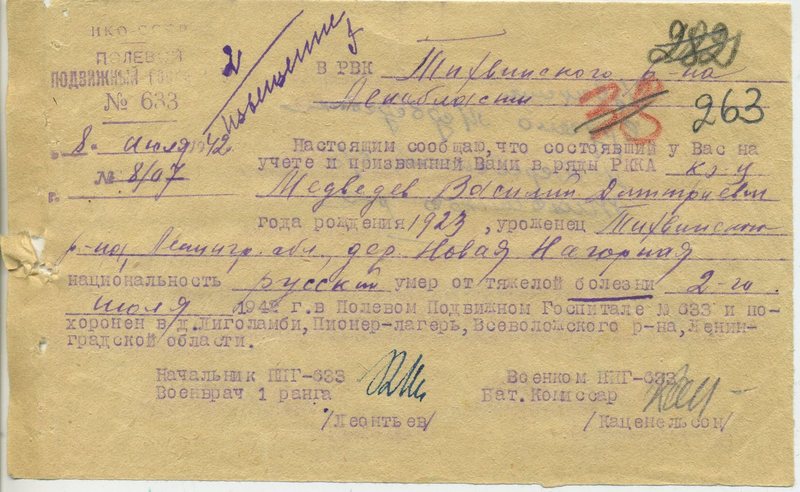 НКО-СССР
ПОЛЕВОЙ
ПОДВИЖНЫЙ ГОСПИТАЛЬ
№ 633
8 июля 1942
№ 8/07
г.
2 Извещение
282
38
263
в РВК Тихвинского р-на
Ленобласти
Настоящим сообщаю, что состоявший у Вас на
учете и призванный Вами в ряды РККА кр-ц
Медведев Василий Дмитриевич
года рождения 1923, уроженец Тихвинского
р-на, Ленингр. обл, дер. Новая Нагорная
национальность русский умер от тяжелой болезни 2-го
июля 1942 г.в Полевом Подвижном Госпитале № 633 и по-
хоронен в д.Лиголамби, Пионер-лагерь, Всеволожского р-на, Ленин-
градской области.
Начальник ППГ-633
Военврач 1 ранга
/Леонтьев/
Военком ППГ-633
Бат. Комиссар
/Каценельсон/